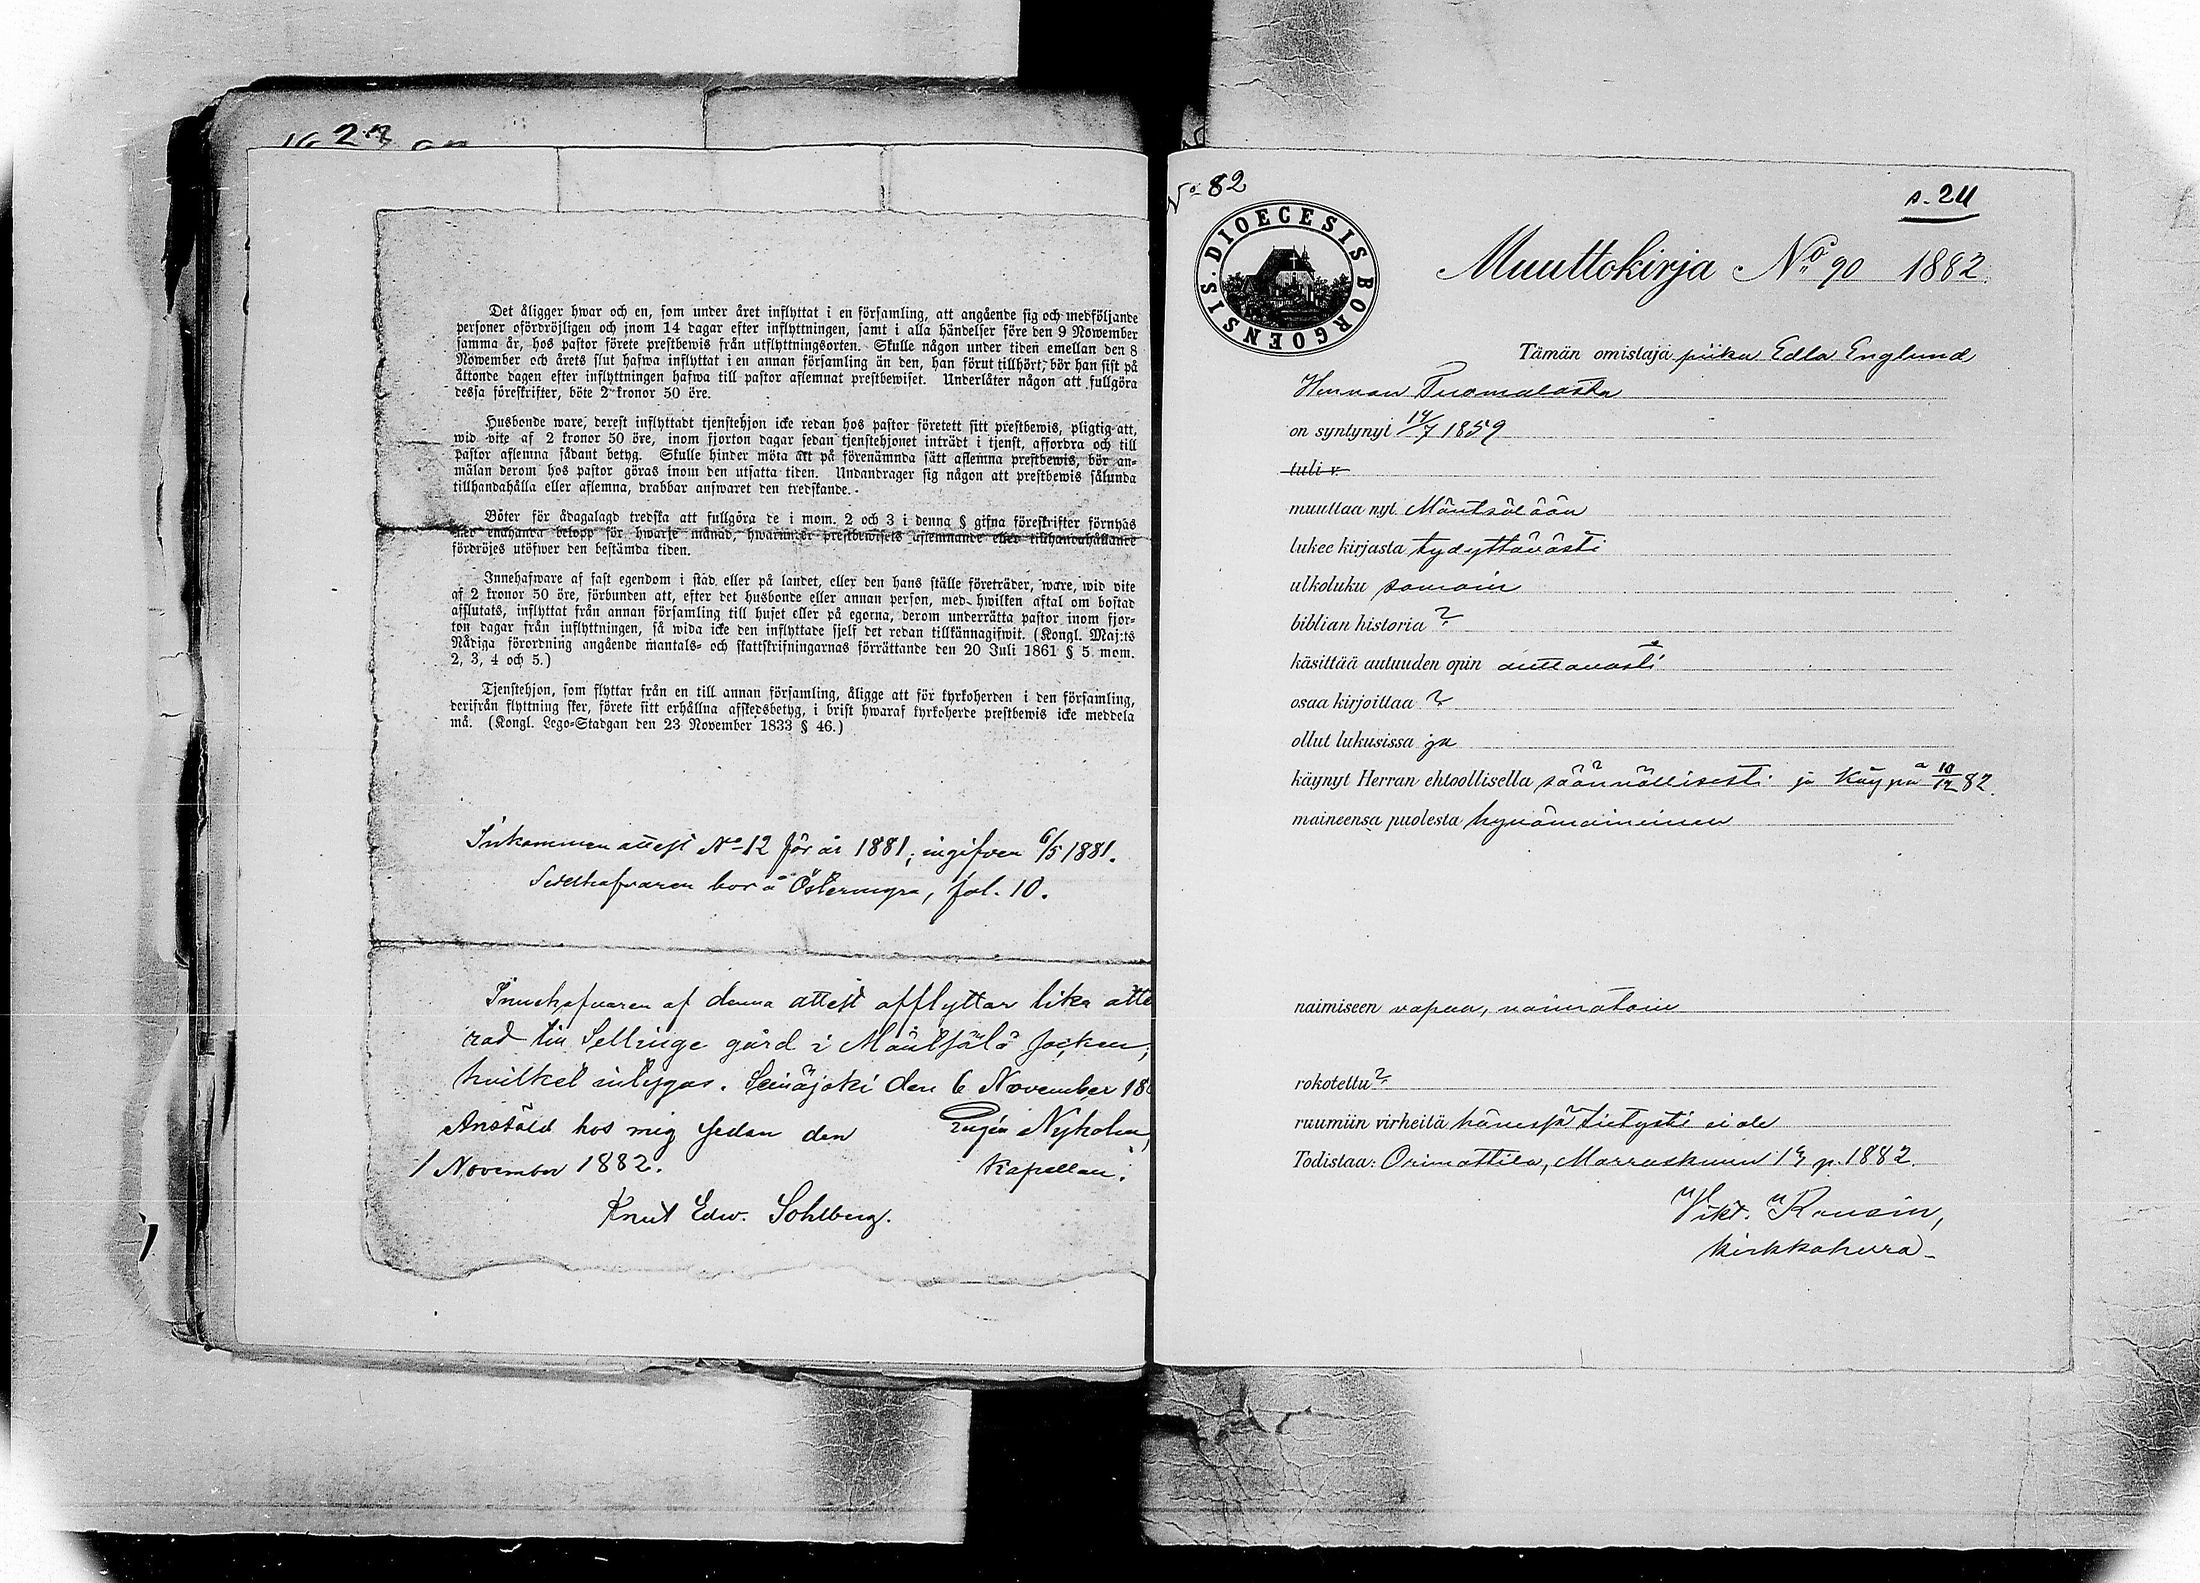 Det åligger hwar och en, som under året inflyttat i en församling, att angående sig och medföljande
personer ofördröjligen och inom 14 dagar efter inflyttningen, samt i alla händelser före den 9 Nowember
samma år, hos pastor förete prestbewis från utflyttningsorten. Skulle någon under tiden emellan den 8
Nowember och årets slut hafwa inflyttat i en annan församling än den, han förut tillhört, bör han sist på
åttonde dagen efter inflyttningen hafwa till pastor aflemnat prestbewiset. Underlåter någon att fullgöra
dessa föreskrifter, böte 2 kronor 50 öre.
Husbonde ware, derest inflyttadt tjenstehjon icke redan hos pastor företett sitt prestbewis, pligtig att,
wid vite af 2 kronor 50 öre, inom fjorton dagar sedan tjenstehjonet inträdt i tjenst, affordra och till
pastor aflemna sådant betyg. Skulle hinder möta att på förenämnda sätt aflemna prestbewis, bör an-
mälan derom hos pastor göras inom den utsatta tiden. Undandrager sig någon att prestbewis sålunda
tillhandahålla eller aflemna, drabbar answaret den tredskande.
Böter för ådagalagd tredska att fullgöra de i mom. 2 och 3 i denna § gifna föreskrifter förnyas
med enahanda belopp för hwarje månad, hwarunder prestbewisets aflemnande eller tillhandahållande
fördröjes utöfwer den bestämda tiden.
Innehafware af fast egendom i stad eller på landet, eller den hans ställe företräder, ware, wid vite
af 2 kronor 50 öre, förbunden att, efter det husbonde eller annan person, med hwilken aftal om bostad
afslutats, inflyttat från annan församling till huset eller på egorna, derom underrätta pastor inom fjor-
ton dagar från inflyttningen, så wida icke den inflyttade sjelf det redan tillkännagifwit. (Kongl. Maj:ts
Nådiga förordning angående mantals- och skattskrifningarnas förrättande den 20 Juli 1861 § 5 mom.
2, 3, 4 och 5.)
Tjenstehjon, som flyttar från en till annan församling, åligge att för kyrkoherden i den församling,
derifrån flyttning sker, förete sitt erhållna afskedsbetyg, i brist hwaraf kyrkoherde prestbewis icke meddela
må. (Kongl. Lego-Stadgan den 23 November 1833 § 46.)
Inkommen attest No 12 för år 1881, ingifven 6/5 1881.
Sedelhafvaren bor å Östermyra, fol. 10.
Innehafvaren af denna attest afflyttar lika atte
rad till Sellinge gård i Mäntsälä socken,
hvilket intygas. Seinäjoki den 6 November 18
Anstäld hos mig sedan den
Eugén Nyholm,
1 November 1882.
Kapellan.
Knut Edw. Sohlberg.
No 82
s. 24
DIOECESIS BORGOENSIS.
Muuttokirja No 90 1882.
Tämän omistaja piika Edla Englund
Hennan Tuomalasta
on syntynyt 14/7 1859
tuli v.
muuttaa nyt Mäntsälään
lukee kirjasta tydyttävästi
ulkoluku samoin
biblian historia ?
käsittää autuuden opin auttavasti
osaa kirjoittaa ?
ollut lukusissa ja
käynyt Herran ehtoollisella säännöllisesti ja käypä 10/12 82.
maineensa puolesta hyvämaineinen
naimiseen vapaa, naimatoin
rokotettu ?
ruumiin virheitä hänessä tietysti ei ole
Todistaa: Orimattila, Marraskuun p. 1882.
Vikt. Rousin,
kirkkoherra